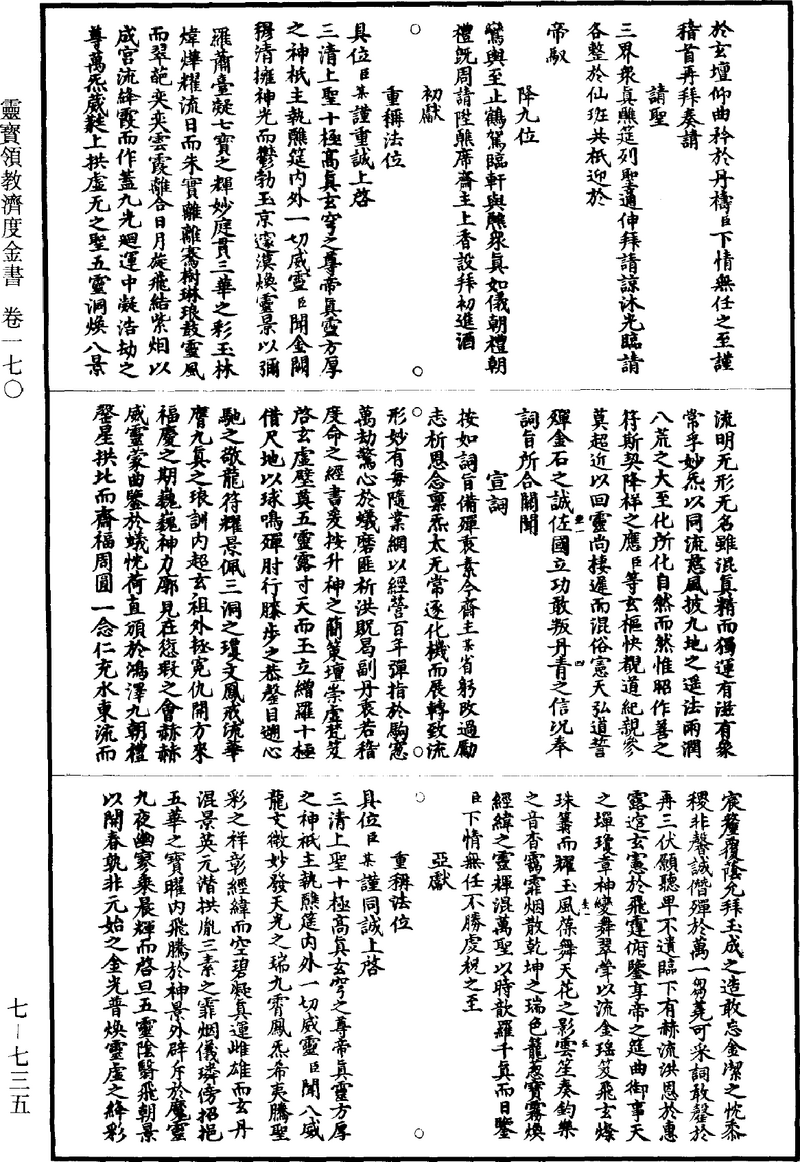 於玄壇仰曲矜於丹禱臣下情無任之至謹
稽首再拜奏請
請聖
三界衆真醮筵列聖適伸拜請諒沐光臨請
各整於仙班共祇迎於
帝馭
降九位
鸞輿至止鶴駕臨軒與醮衆真如儀朝禮朝
禮旣周請陞醮席齋主上香設拜初進酒
初獻
重稱法位
具位臣某謹重誠上啓
三清上聖十極高真玄穹之尊帝真靈方厚
之神祇主執醮筵內外一切威靈臣聞金闕
穆清擁神光而鬱勃玉京寥漠煥靈景以彌
羅蕭臺凝七寶之輝妙庭貫三華之彩玉林
煒燁耀流日而朱實離離騫樹琳琅鼓靈風
而翠葩奕奕雲霞離合日月旋飛結紫烟以
成宮流絳霞而作蓋九光廻運中凝浩劫之
尊萬炁葳蕤上拱虛无之聖五靈洞煥八景
流明无形无名雖混真精而獨運有滋有象
常乎妙炁以同流慈風披九地之遥法雨潤
八荒之大至化所化自然而然惟昭作善之
符斯契降祥之應臣等玄樞快覩道紀親參
莫超近以回靈尚棲遲而混俗憲天弘道誓
殫金石之誠佐國立功敢叛丹青之信況奉
詞旨所合關聞
宣詞
按如詞旨備殫衷素今齋主某省躬改過勵
志祈恩念稟炁太无常逐化機而展轉致流
形妙有每隨業網以經營百年彈指於駒窻
萬劫驚心於蟻磨匪祈洪貺曷副丹衷若稽
度命之經書爰按升神之簡策壇崇虛梵笈
啓玄虛璧奠五靈露寸天而玉立繒羅十極
借尺地以球鳴殫肘行膝步之恭罄目遡心
馳之敬龍符耀景佩三洞之瓊文鳳戒流華
膺九真之琅訓內超玄祖外拯寃仇開方來
福慶之期巍巍神力廓見在愆瑕之會赫赫
威靈蒙曲鑒於蟻忱荷直頒於鴻澤九朝禮
罄星拱北而齋福周圓一念仁充水東流而
宸釐覆蔭允拜玉成之造敢忘金潔之忱黍
稷非馨誠僭殫於萬一芻蕘可采詞敢罄於
再三伏願聽卑不遺臨下有赫流洪恩於惠
露逭玄憲於飛霆俯鑒享帝之筵曲御事天
之墠瓊章神變舞翠斚以流金瑶笈飛玄燦
珠籌而耀玉風葆舞天花之影雲笙奏鈞樂
之音杳靄霏烟散乾坤之瑞色籠葱寶霧煥
經緯之靈輝混萬聖以時歆羅千真而日鑒
臣下情無任不勝虔稅之至
亞獻
重稱法位
具位臣某謹同誠上啓
三清上聖十極高真玄穹之尊帝真靈方厚
之神祇主執醮筵內外一切威靈臣聞八威
龍文微妙發天光之瑞九霄鳳炁希夷騰聖
彩之祥彰經緯而空碧凝真運雌雄而玄丹
混景英元潛拱胤三素之霏烟儀璘傍招挹
五華之寶曜內飛騰於神景外辟斥於魔靈
九夜幽寥乘晨輝而啓旦五靈陰翳飛朝景
以開春孰非元始之金光普煥靈虛之絳彩
靈寶領教濟度金書　卷一七〇
七—七三五